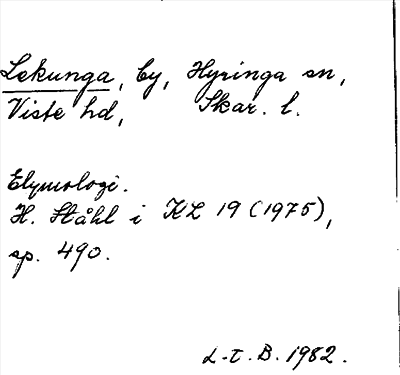 Lekunga, by, Hyringa sn,
Viste hd, Skar. l.
Etymologi.
H. Ståhl i KL 19 (1975),
sp. 490.
L-t. B. 1982.